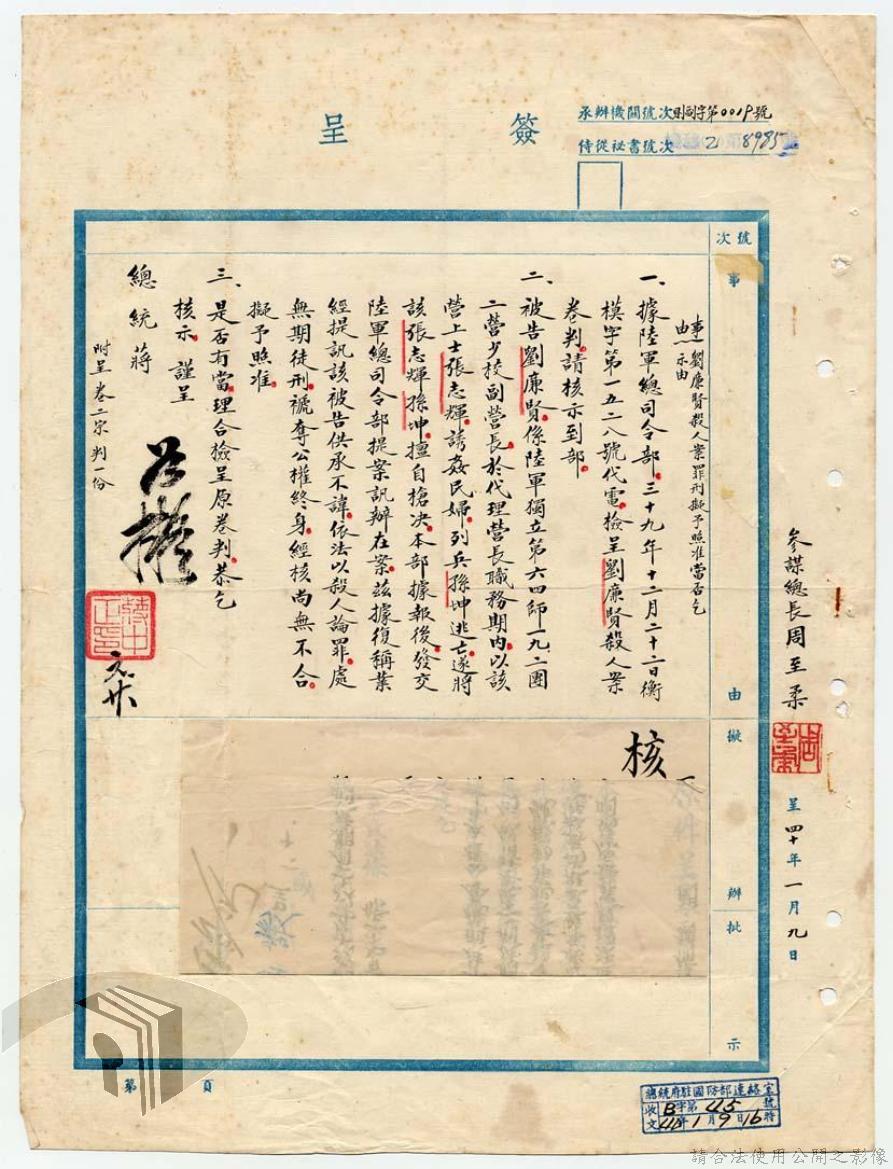 簽呈
承辦機關號次
侍從祕書號次 2 8985
號次
事由
擬辦
批示
參謀總長周至柔
呈 四十年一月九日
事由:劉廉賢殺人案罪刑擬予照准當否乞示由
一、據陸軍總司令部三十九年十二月二十二日衡
模字第一五二八號代電檢呈劉廉賢殺人案
卷判請核示到部。
二、被告劉廉賢係陸軍獨立第六四師一九二團
二營少校副營長於代理營長職務期內以該
營上士張志輝誘姦民婦列兵孫坤逃亡遂將
該張志輝孫坤擅自槍决本部據報後發交
陸軍總司令部提案訊辦在案茲據復稱業
經提訊該被告供承不諱依法以殺人論罪處
無期徒刑褫奪公權終身經核尚無不合
擬予照准
三、是否有當理合檢呈原卷判恭乞
核示 謹呈
總統蔣
附呈卷二宗判一份
核
第 頁
總統府駐國防部連絡室
收文 B字第 45 號
40年1月9日16時
請合法使用公開之影像